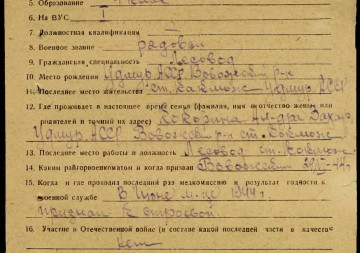 5. Образование
6. На ВУС I
7. Должностная квалификация
8. Военное звание рядовой
9. Гражданская специальность Лесовод
10. Место рождения Удмур. АССР Вавожский р-н
11. Последнее место жительства ст. Какмож Удмур. АССР
12. Где проживает в настоящее время семья (фамилия, имя и отчество жены или
родителей и точный их адрес)
Удмур. АССР Вавожский р-н ст. Какмож
13. Последнее место работы и должность Лесовод ст. Какмож
14. Каким райгорвоенкоматом и когда призван Вавожский
15. Когда и где проходил последний раз медкомиссию и результат годности к
военной службе В Июне м-це 1944 г.
признан к строевой.
16. Участие в Отечественной войне (в составе какой последней части в качестве
Нет